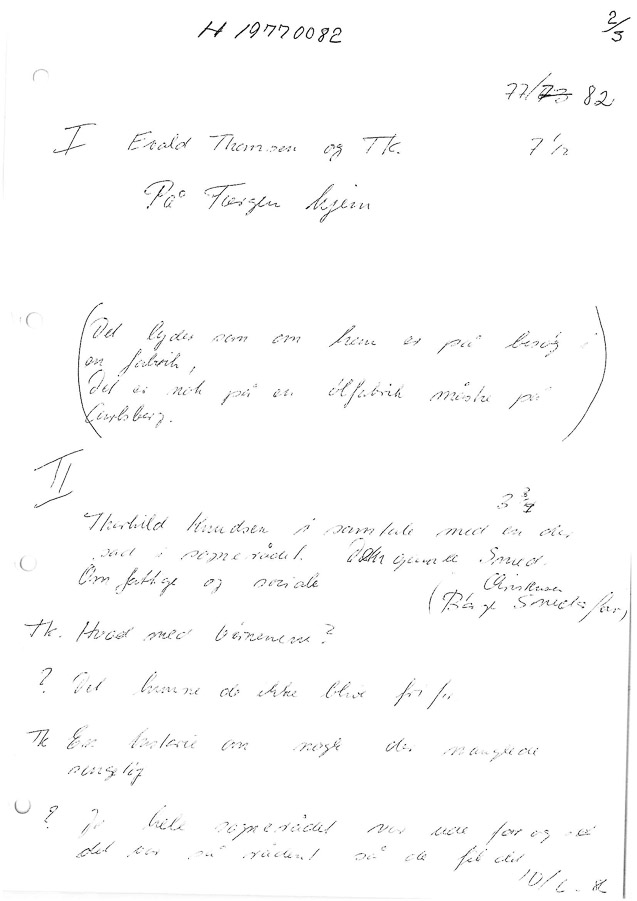 H 19770082
2/5
77/73 82
I Evald Thomsen og Tk. 7 1/2
På Færgen hjem
(Det lyder som om han er på besøg i
en fabrik,
Det er nok på en ølfabrik måske på
Carlsberg.)
II
3 3/4
Thorkild Knudsen i samtale med en der
sad i sognerådet. Den gamle Smed.
Om fattige og sociale
Christensen
(Børge Smeds far)
Tk. Hvad med børnene?
? Det kunne de ikke blive fri for
Tk En historie om nogle der manglede
sengetøj
? Jo hele sognerådet var ude for og se
det var så rådent så de fik det
10/6.